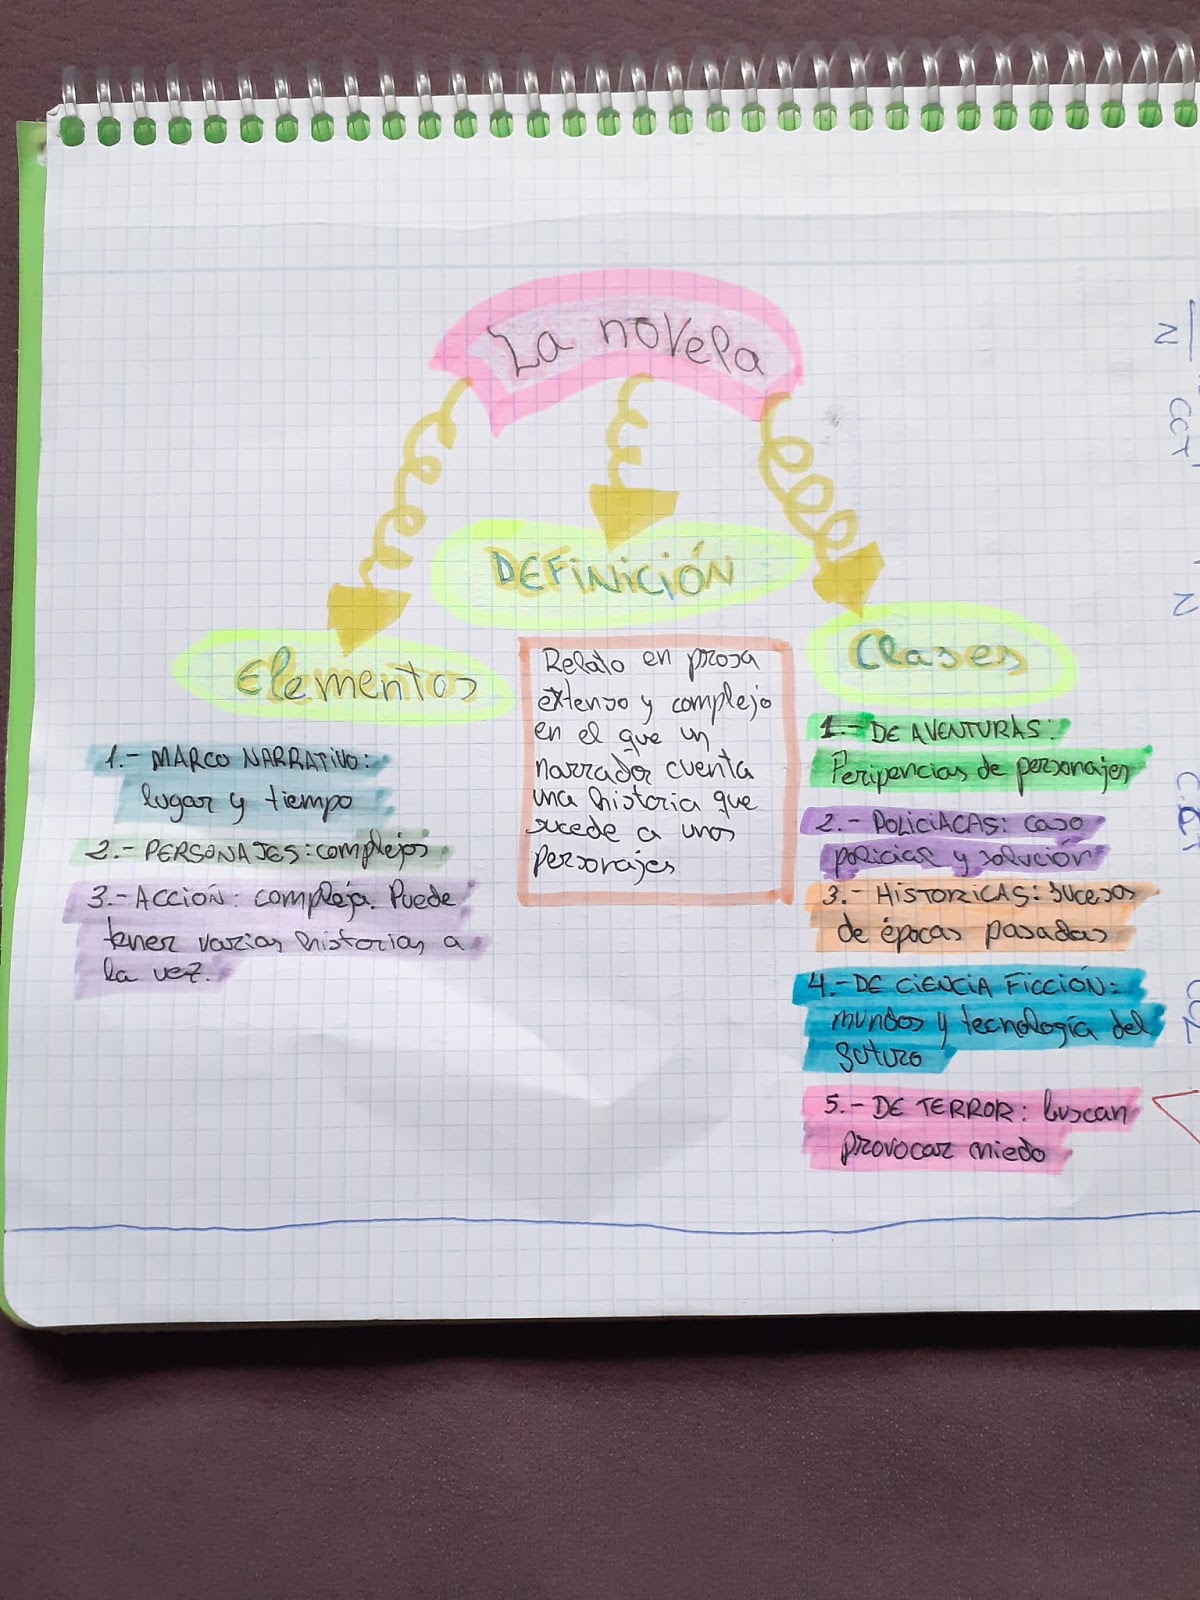 La novela
DEFINICIÓN
Relato en prosa
extenso y complejo
en el que un
narrador cuenta
una historia que
sucede a unos
personajes
Elementos
1.- MARCO NARRATIVO:
lugar y tiempo
2.- PERSONAJES: complejos
3.- ACCIÓN: compleja. Puede
tener varias historias a
la vez.
Clases
1.- DE AVENTURAS:
Peripencias de personajes
2.- POLICIACAS: caso
policial y solución
3.- HISTORICAS: sucesos
de épocas pasadas
4.- DE CIENCIA FICCIÓN:
mundos y tecnología del
futuro
5.- DE TERROR: buscan
provocar miedo